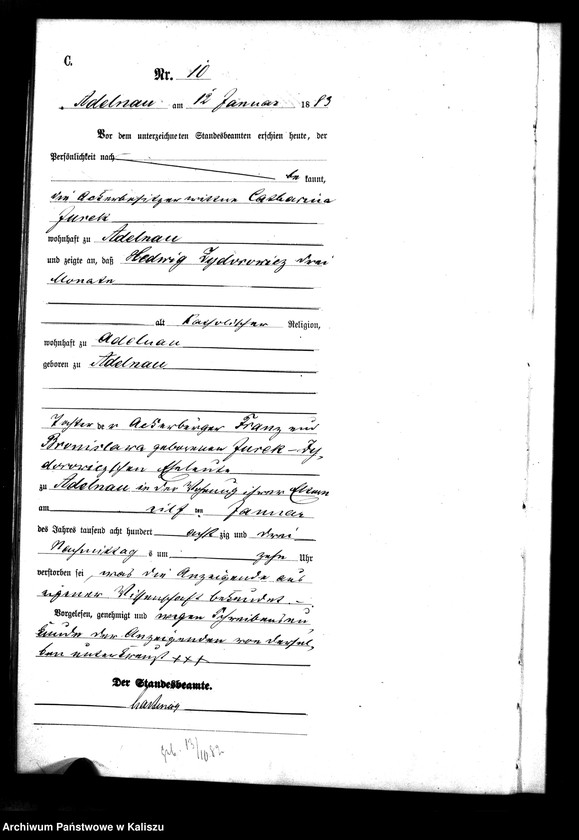 C.
Nr. 10
Adelnau am 12 Januar 1883
Vor dem unterzeichneten Standesbeamten erschien heute, der
Persönlichkeit nach
be kannt,
die Ackerbesitzerwittwe Catharina
Jurek
wohnhaft zu Adelnau
und zeigte an, daß Hedwig Zydorowicz drei
Monate
alt katholischer Religion,
wohnhaft zu Adelnau
geboren zu Adelnau
Tochter der Ackerbürger Franz und
Bronislawa geborenen Jurek - Zy,
dorowiczschen Eheleute
zu Adelnau in der Wohnung ihrer Eltern
am eilf ten Januar
des Jahres tausend acht hundert acht zig und drei
Nachmittag s um zehn Uhr
verstorben sei, was die Anzeigende aus
eigener Wissenschaft bekundet. -
Vorgelesen, genehmigt und wegen Schreibensun
kunde der Anzeigenden von dersel,
ben unterkreuzt +++
Der Standesbeamte.
geb. 13/10 82
Archiwum Państwowe w Kaliszu